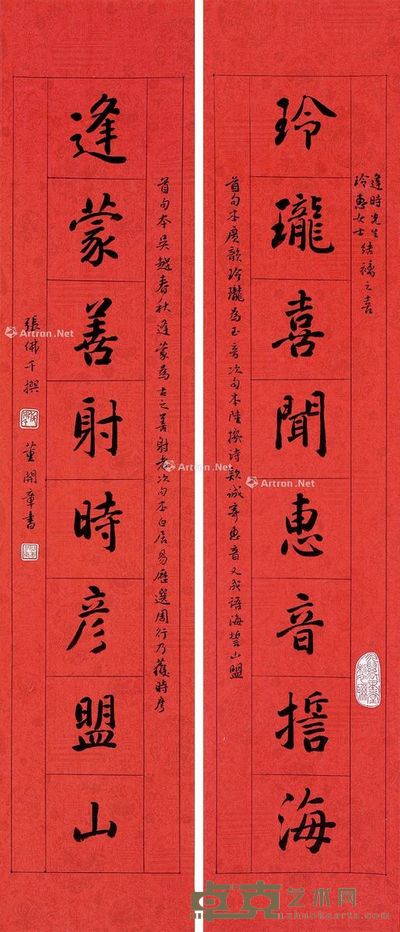 逢時先生
玲惠女士 結褵之喜
玲瓏喜聞惠音誓海
首句本廣韻玲瓏為玉音次句本陸機詩款誠寄惠音又成語海誓山盟
首句本吳越春秋逢蒙為古之善射者次句本白居易歷選周行乃獲時彥
逢蒙善射時彥盟山
張佛千撰
董開章書
Artron.Net
Artron.Net
Artron.Net
Artron.Net
卓克艺术网